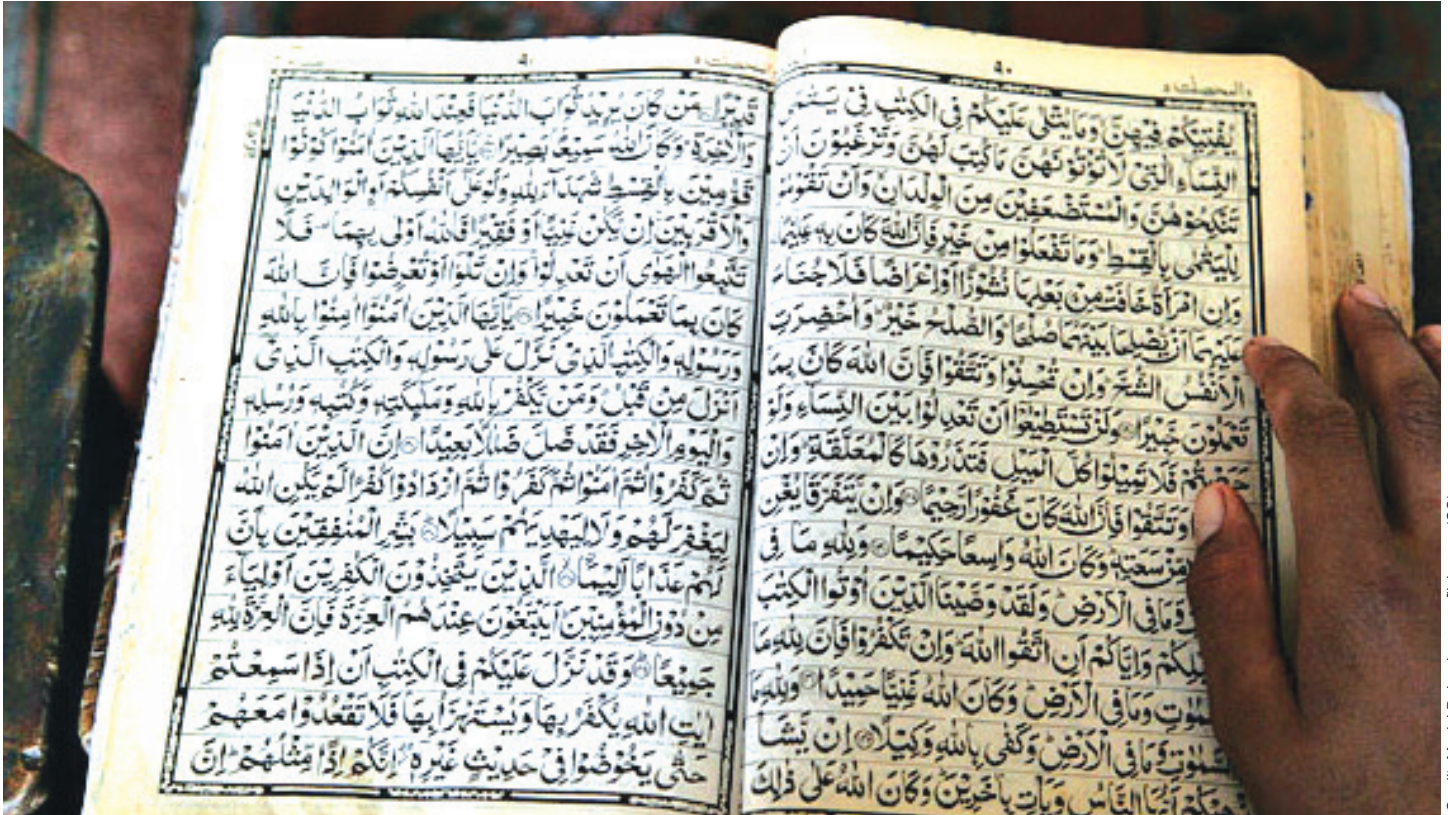 ٩٠
والمحصنت ٥
يُفْتِيْكُمْ فِيْهِنَّ وَمَا يُتْلٰى عَلَيْكُمْ فِى الْكِتٰبِ فِىْ يَتٰمَى
النِّسَآءِ الّٰتِىْ لَا تُؤْتُوْنَهُنَّ مَا كُتِبَ لَهُنَّ وَتَرْغَبُوْنَ اَنْ
تَنْكِحُوْهُنَّ وَالْمُسْتَضْعَفِيْنَ مِنَ الْوِلْدَانِ وَاَنْ تَقُوْمُوْا
لِلْيَتٰمٰى بِالْقِسْطِ وَمَا تَفْعَلُوْا مِنْ خَيْرٍ فَاِنَّ اللّٰهَ كَانَ بِهٖ عَلِيْمًا
وَاِنِ امْرَاَةٌ خَافَتْ مِنْۢ بَعْلِهَا نُشُوْزًا اَوْ اِعْرَاضًا فَلَا جُنَاحَ
عَلَيْهِمَآ اَنْ يُّصْلِحَا بَيْنَهُمَا صُلْحًا وَالصُّلْحُ خَيْرٌ وَاُحْضِرَتِ
الْاَنْفُسُ الشُّحَّ وَاِنْ تُحْسِنُوْا وَتَتَّقُوْا فَاِنَّ اللّٰهَ كَانَ بِمَا
تَعْمَلُوْنَ خَبِيْرًا وَلَنْ تَسْتَطِيْعُوْٓا اَنْ تَعْدِلُوْا بَيْنَ النِّسَآءِ وَلَوْ
حَرَصْتُمْ فَلَا تَمِيْلُوْا كُلَّ الْمَيْلِ فَتَذَرُوْهَا كَالْمُعَلَّقَةِ وَاِنْ
وَتَتَّقُوْا فَاِنَّ اللّٰهَ كَانَ غَفُوْرًا رَّحِيْمًا وَاِنْ يَّتَفَرَّقَا يُغْنِ
مِّنْ سَعَتِهٖ وَكَانَ اللّٰهُ وَاسِعًا حَكِيْمًا وَلِلّٰهِ مَا فِى
وَمَا فِى الْاَرْضِ وَلَقَدْ وَصَّيْنَا الَّذِيْنَ اُوْتُوا الْكِتٰبَ
قَبْلِكُمْ وَاِيَّاكُمْ اَنِ اتَّقُوا اللّٰهَ وَاِنْ تَكْفُرُوْا فَاِنَّ لِلّٰهِ مَا
السَّمٰوٰتِ وَمَا فِى الْاَرْضِ وَكَانَ اللّٰهُ غَنِيًّا حَمِيْدًا وَلِلّٰهِ مَا
السَّمٰوٰتِ وَمَا فِى الْاَرْضِ وَكَفٰى بِاللّٰهِ وَكِيْلًا اِنْ يَّشَاْ
يُذْهِبْكُمْ اَيُّهَا النَّاسُ وَيَاْتِ بِاٰخَرِيْنَ وَكَانَ اللّٰهُ عَلٰى ذٰلِكَ
قَدِيْرًا مَنْ كَانَ يُرِيْدُ ثَوَابَ الدُّنْيَا فَعِنْدَ اللّٰهِ ثَوَابُ الدُّنْيَا
وَالْاٰخِرَةِ وَكَانَ اللّٰهُ سَمِيْعًۢا بَصِيْرًا يٰٓاَيُّهَا الَّذِيْنَ اٰمَنُوْا كُوْنُوْا
قَوّٰمِيْنَ بِالْقِسْطِ شُهَدَآءَ لِلّٰهِ وَلَوْ عَلٰٓى اَنْفُسِكُمْ اَوِ الْوَالِدَيْنِ
وَالْاَقْرَبِيْنَ اِنْ يَّكُنْ غَنِيًّا اَوْ فَقِيْرًا فَاللّٰهُ اَوْلٰى بِهِمَا فَلَا
تَتَّبِعُوا الْهَوٰٓى اَنْ تَعْدِلُوْا وَاِنْ تَلْوٗٓا اَوْ تُعْرِضُوْا فَاِنَّ اللّٰهَ
كَانَ بِمَا تَعْمَلُوْنَ خَبِيْرًا يٰٓاَيُّهَا الَّذِيْنَ اٰمَنُوْٓا اٰمِنُوْا بِاللّٰهِ
وَرَسُوْلِهٖ وَالْكِتٰبِ الَّذِىْ نَزَّلَ عَلٰى رَسُوْلِهٖ وَالْكِتٰبِ الَّذِىْٓ
اَنْزَلَ مِنْ قَبْلُ وَمَنْ يَّكْفُرْ بِاللّٰهِ وَمَلٰٓئِكَتِهٖ وَكُتُبِهٖ وَرُسُلِهٖ
وَالْيَوْمِ الْاٰخِرِ فَقَدْ ضَلَّ ضَلٰلًۢا بَعِيْدًا اِنَّ الَّذِيْنَ اٰمَنُوْا
ثُمَّ كَفَرُوْا ثُمَّ اٰمَنُوْا ثُمَّ كَفَرُوْا ثُمَّ ازْدَادُوْا كُفْرًا لَّمْ يَكُنِ اللّٰهُ
لِيَغْفِرَ لَهُمْ وَلَا لِيَهْدِيَهُمْ سَبِيْلًا بَشِّرِ الْمُنٰفِقِيْنَ بِاَنَّ
لَهُمْ عَذَابًا اَلِيْمًا الَّذِيْنَ يَتَّخِذُوْنَ الْكٰفِرِيْنَ اَوْلِيَآءَ
مِنْ دُوْنِ الْمُؤْمِنِيْنَ اَيَبْتَغُوْنَ عِنْدَهُمُ الْعِزَّةَ فَاِنَّ الْعِزَّةَ لِلّٰهِ
جَمِيْعًا وَقَدْ نَزَّلَ عَلَيْكُمْ فِى الْكِتٰبِ اَنْ اِذَا سَمِعْتُمْ
اٰيٰتِ اللّٰهِ يُكْفَرُ بِهَا وَيُسْتَهْزَاُ بِهَا فَلَا تَقْعُدُوْا مَعَهُمْ
حَتّٰى يَخُوْضُوْا فِىْ حَدِيْثٍ غَيْرِهٖٓ اِنَّكُمْ اِذًا مِّثْلُهُمْ اِنَّ